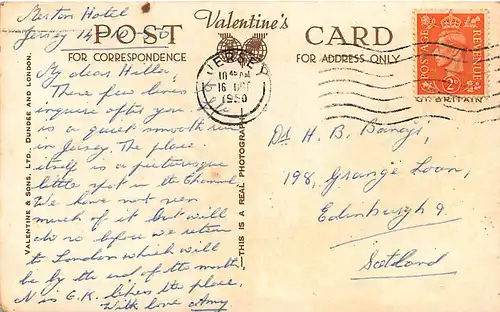 Merton Hotel
Jersey 14
My dear Hilla,
These few lines
inquire after you
is a quiet smooth
in Jersey. The place
itself is a picturesque
little spot in the Channel,
We have not seen
much of it but will
do so before we return
to London which will
be by the end of the month
N is O.K. likes the place.
With love Amy
POST
Valentine's
CARD
FOR CORRESPONDENCE
FOR ADDRESS ONLY
VALENTINE & SONS, LTD., DUNDEE AND LONDON.
THIS IS A REAL PHOTOGRAPH
JERSEY
10 45 AM
16
1950
POSTAGE
REVENUE
2D
GT. BRITAIN
H. B.
198, Grange Loan,
Edinburgh 9.
Scotland